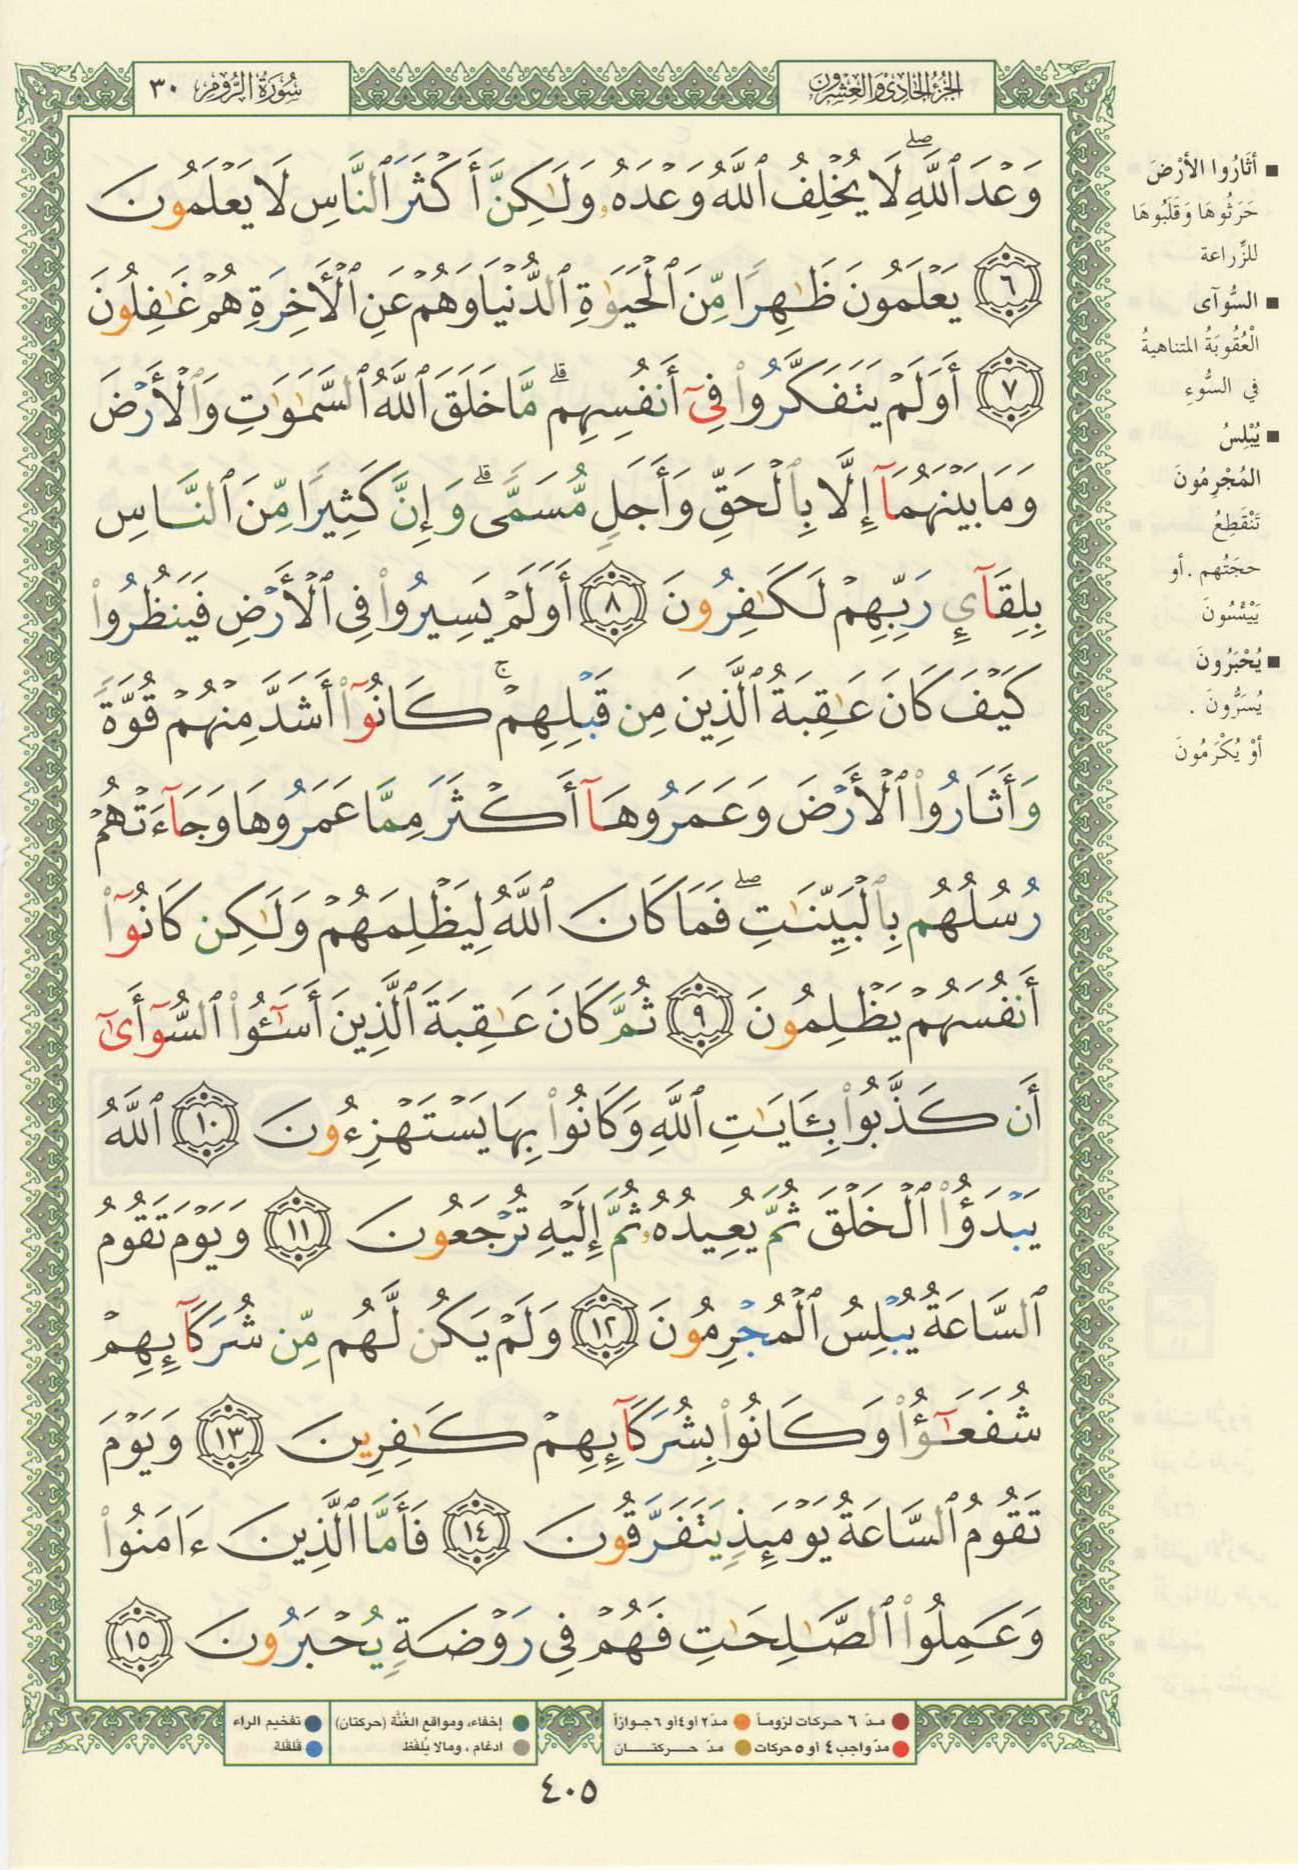 الجزء الحادي والعشرون
سورة الروم ٣٠
وَعْدَ ٱللَّهِ ۖ لَا يُخْلِفُ ٱللَّهُ وَعْدَهُۥ وَلَٰكِنَّ أَكْثَرَ ٱلنَّاسِ لَا يَعْلَمُونَ
٦ يَعْلَمُونَ ظَٰهِرًا مِّنَ ٱلْحَيَوٰةِ ٱلدُّنْيَا وَهُمْ عَنِ ٱلْأَخِرَةِ هُمْ غَٰفِلُونَ
٧ أَوَلَمْ يَتَفَكَّرُوا۟ فِىٓ أَنفُسِهِم ۗ مَّا خَلَقَ ٱللَّهُ ٱلسَّمَٰوَٰتِ وَٱلْأَرْضَ
وَمَا بَيْنَهُمَآ إِلَّا بِٱلْحَقِّ وَأَجَلٍ مُّسَمًّى ۗ وَإِنَّ كَثِيرًا مِّنَ ٱلنَّاسِ
بِلِقَآئِ رَبِّهِمْ لَكَٰفِرُونَ ٨ أَوَلَمْ يَسِيرُوا۟ فِى ٱلْأَرْضِ فَيَنظُرُوا۟
كَيْفَ كَانَ عَٰقِبَةُ ٱلَّذِينَ مِن قَبْلِهِمْ ۚ كَانُوٓا۟ أَشَدَّ مِنْهُمْ قُوَّةً
وَأَثَارُوا۟ ٱلْأَرْضَ وَعَمَرُوهَآ أَكْثَرَ مِمَّا عَمَرُوهَا وَجَآءَتْهُمْ
رُسُلُهُم بِٱلْبَيِّنَٰتِ ۖ فَمَا كَانَ ٱللَّهُ لِيَظْلِمَهُمْ وَلَٰكِن كَانُوٓا۟
أَنفُسَهُمْ يَظْلِمُونَ ٩ ثُمَّ كَانَ عَٰقِبَةَ ٱلَّذِينَ أَسَٰٓـُٔوا۟ ٱلسُّوٓأَىٰٓ
أَن كَذَّبُوا۟ بِـَٔايَٰتِ ٱللَّهِ وَكَانُوا۟ بِهَا يَسْتَهْزِءُونَ ١٠ ٱللَّهُ
يَبْدَؤُا۟ ٱلْخَلْقَ ثُمَّ يُعِيدُهُۥ ثُمَّ إِلَيْهِ تُرْجَعُونَ ١١ وَيَوْمَ تَقُومُ
ٱلسَّاعَةُ يُبْلِسُ ٱلْمُجْرِمُونَ ١٢ وَلَمْ يَكُن لَّهُم مِّن شُرَكَآئِهِمْ
شُفَعَٰٓؤُا۟ وَكَانُوا۟ بِشُرَكَآئِهِمْ كَٰفِرِينَ ١٣ وَيَوْمَ
تَقُومُ ٱلسَّاعَةُ يَوْمَئِذٍ يَتَفَرَّقُونَ ١٤ فَأَمَّا ٱلَّذِينَ ءَامَنُوا۟
وَعَمِلُوا۟ ٱلصَّٰلِحَٰتِ فَهُمْ فِى رَوْضَةٍ يُحْبَرُونَ ١٥
■ أثَارُوا الأرْضَ
حَرَثُوهَا وَقَلَبُوهَا
للزِّراعة
■ السُّوآى
الْعُقُوبَةُ المتناهيةُ
في السُّوءِ
■ يُبْلِسُ
المُجْرِمُونَ
تَنْقَطِعُ
حجَتُهم . أو
يَيْئَسُونَ
■ يُحْبَرُونَ
يُسَرُّونَ .
أوْ يُكْرَمُونَ
مدّ ٦ حركات لزوماً مدّ ٢ أو ٤ أو ٦ جوازاً
مدّ واجب ٤ أو ٥ حركات مدّ حركتان
إخفاء، ومواقع الغُنَّة (حركتان) تفخيم الراء
ادغام ، ومالا يُلفظ قلقلة
٤٠٥